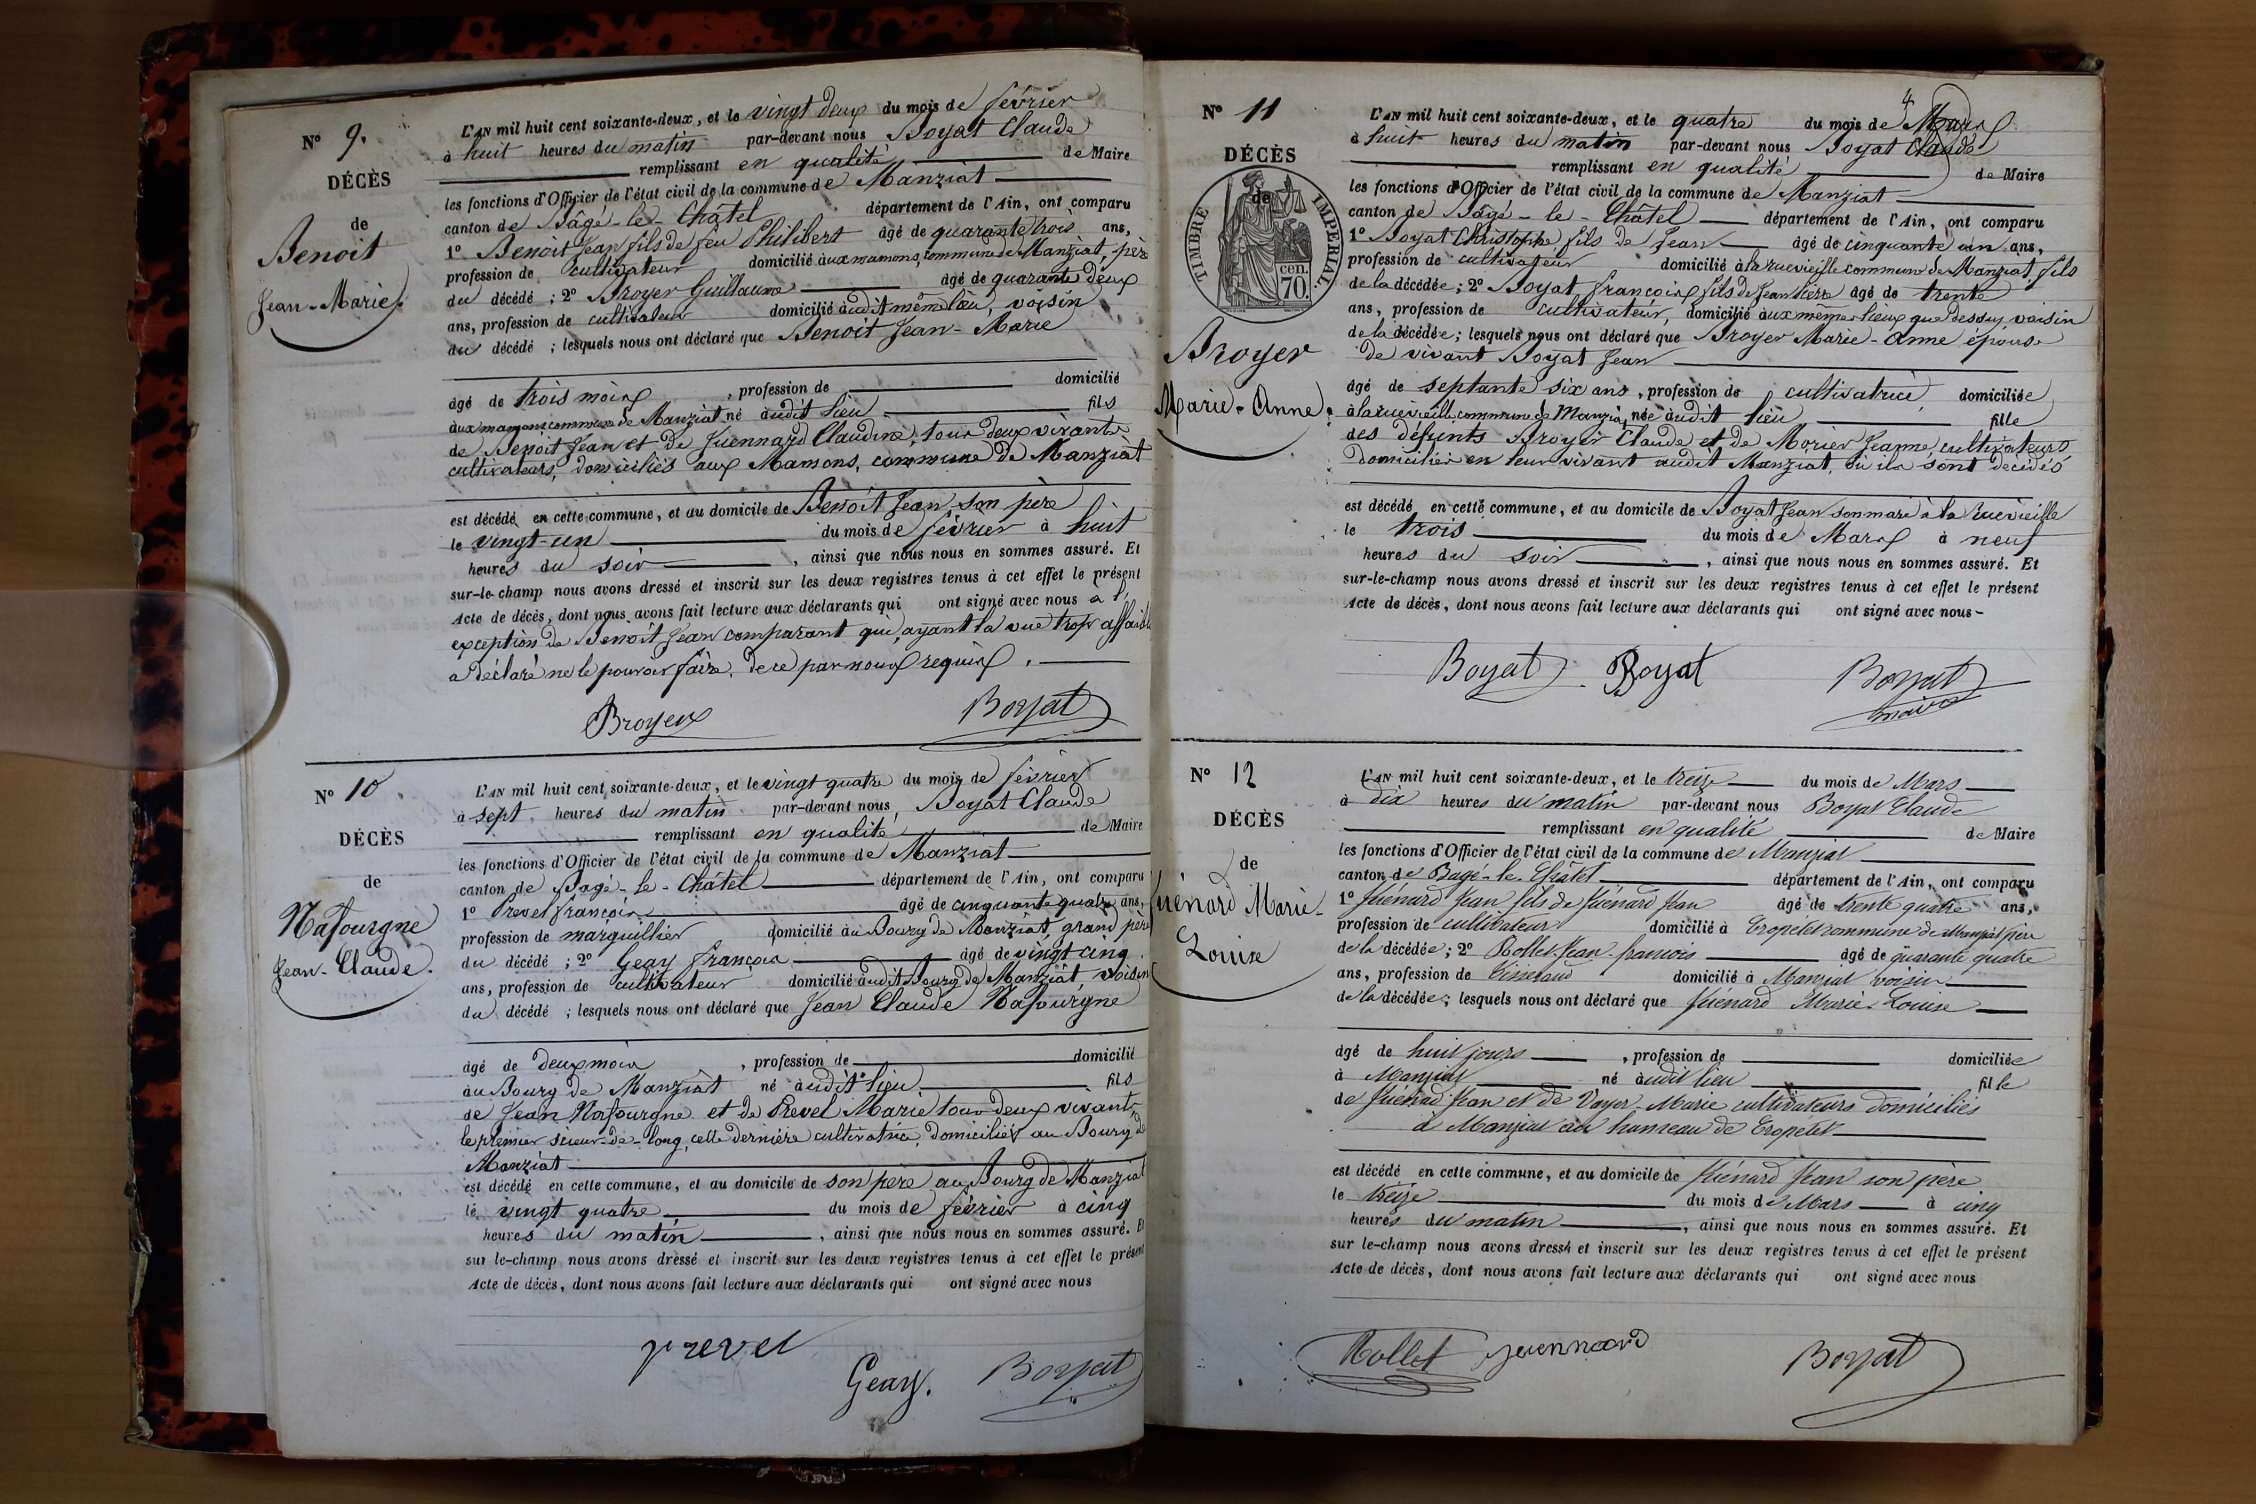 N° 9.
DÉCÈS
de
Benoit
Jean-Marie.
L'AN mil huit cent soixante-deux, et le vingt deux du mois de février
à huit heures du matin par-devant nous Boyat Claude
remplissant en qualité de Maire
les fonctions d'Officier de l'état civil de la commune de Manziat
canton de Bâgé-le-Châtel département de l'Ain, ont comparu
1° Benoit Jean fils de feu Philibert âgé de quarante trois ans,
profession de cultivateur domicilié aux mamons, commune de Manziat, père
du décédé ; 2° Broyer Guillaume âgé de quarante deux
ans, profession de cultivateur domicilié audit même lieu, voisin
du décédé ; lesquels nous ont déclaré que Benoit Jean-Marie
âgé de trois mois , profession de domicilié
aux mamons commune de Manziat né audit lieu fils
de Benoit Jean et de Juennard Claudine, tous deux vivants
cultivateurs, domiciliés aux Mamons, commune de Manziat
est décédé en cette commune, et au domicile de Benoit Jean son père
le vingt-un du mois de février à huit
heures du soir , ainsi que nous nous en sommes assuré. Et
sur-le-champ nous avons dressé et inscrit sur les deux registres tenus à cet effet le présent
Acte de décès, dont nous avons fait lecture aux déclarants qui ont signé avec nous à l'
exception de Benoit Jean comparant qui, ayant la vue trop affaiblie
a déclaré ne le pouvoir faire, de ce par nous requis.
Broyer Boyat
N° 10.
DÉCÈS
de
Nafourgne
Jean-Claude.
L'AN mil huit cent soixante-deux, et le vingt quatre du mois de février
à sept heures du matin par-devant nous, Boyat Claude
remplissant en qualité de Maire
les fonctions d'Officier de l'état civil de la commune de Manziat
canton de Bagé-le-Châtel département de l'Ain, ont comparu
1° Prevel françois âgé de cinquante quatre ans,
profession de marguillier domicilié au Bourg de Manziat, grand père
du décédé ; 2° Geay françois âgé de vingt cinq
ans, profession de cultivateur domicilié audit Bourg de Manziat, voisin
du décédé ; lesquels nous ont déclaré que Jean Claude Nafourgne
âgé de deux mois , profession de domicilié
au Bourg de Manziat né audit lieu fils
de Jean Nafourgne et de Prevel Marie tous deux vivants,
le premier scieur-de-long, cette dernière cultivatrice, domiciliés au Bourg de
Manziat
est décédé en cette commune, et au domicile de son père au Bourg de Manziat
le vingt quatre du mois de février à cinq
heures du matin , ainsi que nous nous en sommes assuré. Et
sur le-champ nous avons dressé et inscrit sur les deux registres tenus à cet effet le présent
Acte de décès, dont nous avons fait lecture aux déclarants qui ont signé avec nous
prevel
Geay. Boyat
4
N° 11
DÉCÈS
de
TIMBRE IMPERIAL
70 cen.
Broyer
Marie-Anne.
L'AN mil huit cent soixante-deux, et le quatre du mois de Mars
à huit heures du matin par-devant nous Boyat Claude
remplissant en qualité de Maire
les fonctions d'Officier de l'état civil de la commune de Manziat
canton de Bâgé-le-Châtel département de l'Ain, ont comparu
1° Boyat Christophe fils de Jean âgé de cinquante un ans,
profession de cultivateur domicilié à la rue vieille commune de Manziat, fils
de la décédée ; 2° Boyat françois fils de Jean Pierre âgé de trente
ans, profession de cultivateur, domicilié aux mêmes lieux que dessus, voisin
de la décédée ; lesquels nous ont déclaré que Broyer Marie-Anne épouse
de vivant Boyat Jean
âgé de septante six ans, profession de cultivatrice domiciliée
à la rue vieille commune de Manziat, née audit lieu fille
des défunts Broyer Claude et de Morier Jeanne, cultivateurs
domiciliés en leur vivant audit Manziat, où ils sont décédés
est décédé en cette commune, et au domicile de Boyat Jean son mari à la Rue vieille
le trois du mois de Mars à neuf
heures du soir , ainsi que nous nous en sommes assuré. Et
sur-le-champ nous avons dressé et inscrit sur les deux registres tenus à cet effet le présent
Acte de décès, dont nous avons fait lecture aux déclarants qui ont signé avec nous-
Boyat Boyat Boyat
maire
N° 12
DÉCÈS
de
Juénard Marie-
Louise
L'AN mil huit cent soixante-deux, et le treize du mois de Mars
à dix heures du matin par-devant nous Boyat Claude
remplissant en qualité de Maire
les fonctions d'Officier de l'état civil de la commune de Manziat
canton de Bagé-le-Châtel département de l'Ain, ont comparu
1° Juénard Jean fils de Juénard Jean âgé de trente quatre ans,
profession de cultivateur domicilié à Cropétet commune de Manziat père
de la décédée ; 2° Rollet Jean-françois âgé de quarante quatre
ans, profession de Tisserand domicilié à Manziat voisin
de la décédée ; lesquels nous ont déclaré que Juénard Marie-Louise
âgé de huit jours , profession de domiciliée
à Manziat né audit lieu fille
de Juénard Jean et de Dayer Marie cultivateurs domiciliés
à Manziat au hameau de Cropétet
est décédé en cette commune, et au domicile de Juénard Jean son père
le treize du mois de Mars à cinq
heures du matin , ainsi que nous nous en sommes assuré. Et
sur le-champ nous avons dressé et inscrit sur les deux registres tenus à cet effet le présent
Acte de décès, dont nous avons fait lecture aux déclarants qui ont signé avec nous
Rollet Juennard Boyat